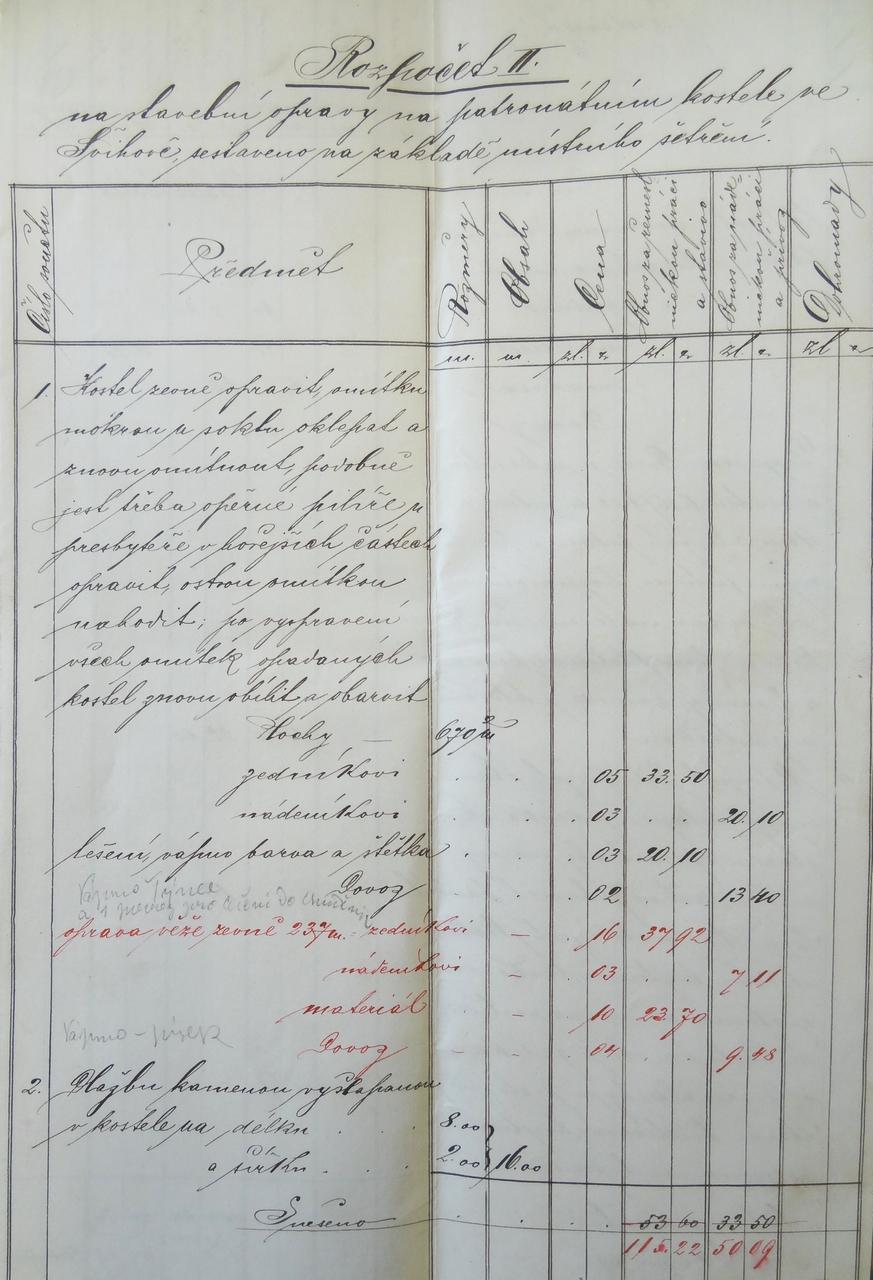 Rozpočet II.
na stavební opravy na patronátním kostele ve
Švihově, sestaveno na základě místního šetření.
Číslo počtu
Předmět
Rozměry
Obsah
Cena
Obnos za řemesl
nickou práci
a stavivo
Obnos za náde
nickou práci
a přívoz
Dohromady
m. m. zl. kr zl. kr zl. kr. zl kr
1. Kostel zevně opravit, omítku
mokrou u soklu oklepat a
znovu omítnout, podobně
jest třeba opěrné pilíře u
presbyteře v hořejších částech
opravit, ostrou omítkou
nahodit; po vyspravení
všech omítek opadaných
kostel znovu obílit a obarvit
Plochy — 670 m2
zedníkovi . . . 05 33. 50
nádeníkovi . . . 03 . . 20. 10
lešení, vápno barva a štětka . . . 03 20. 10
Dovoz . . . 02 13 40
Vápno Týnce
a
oprava věže zevně 237m. = zedníkovi — 16 37 92
nádeníkovi — 03 . . 7 11
materiál — 10 23. 70
Vápno – písek
Dovoz — — 04 . . 9. 48
2. Dlažbu kamenou vyšlapanou
v kostele na délku . . . 8.00
a šířku . . . 2.00 16.00
Snešeno . . . . 53 60 33 50
115. 22 50 09